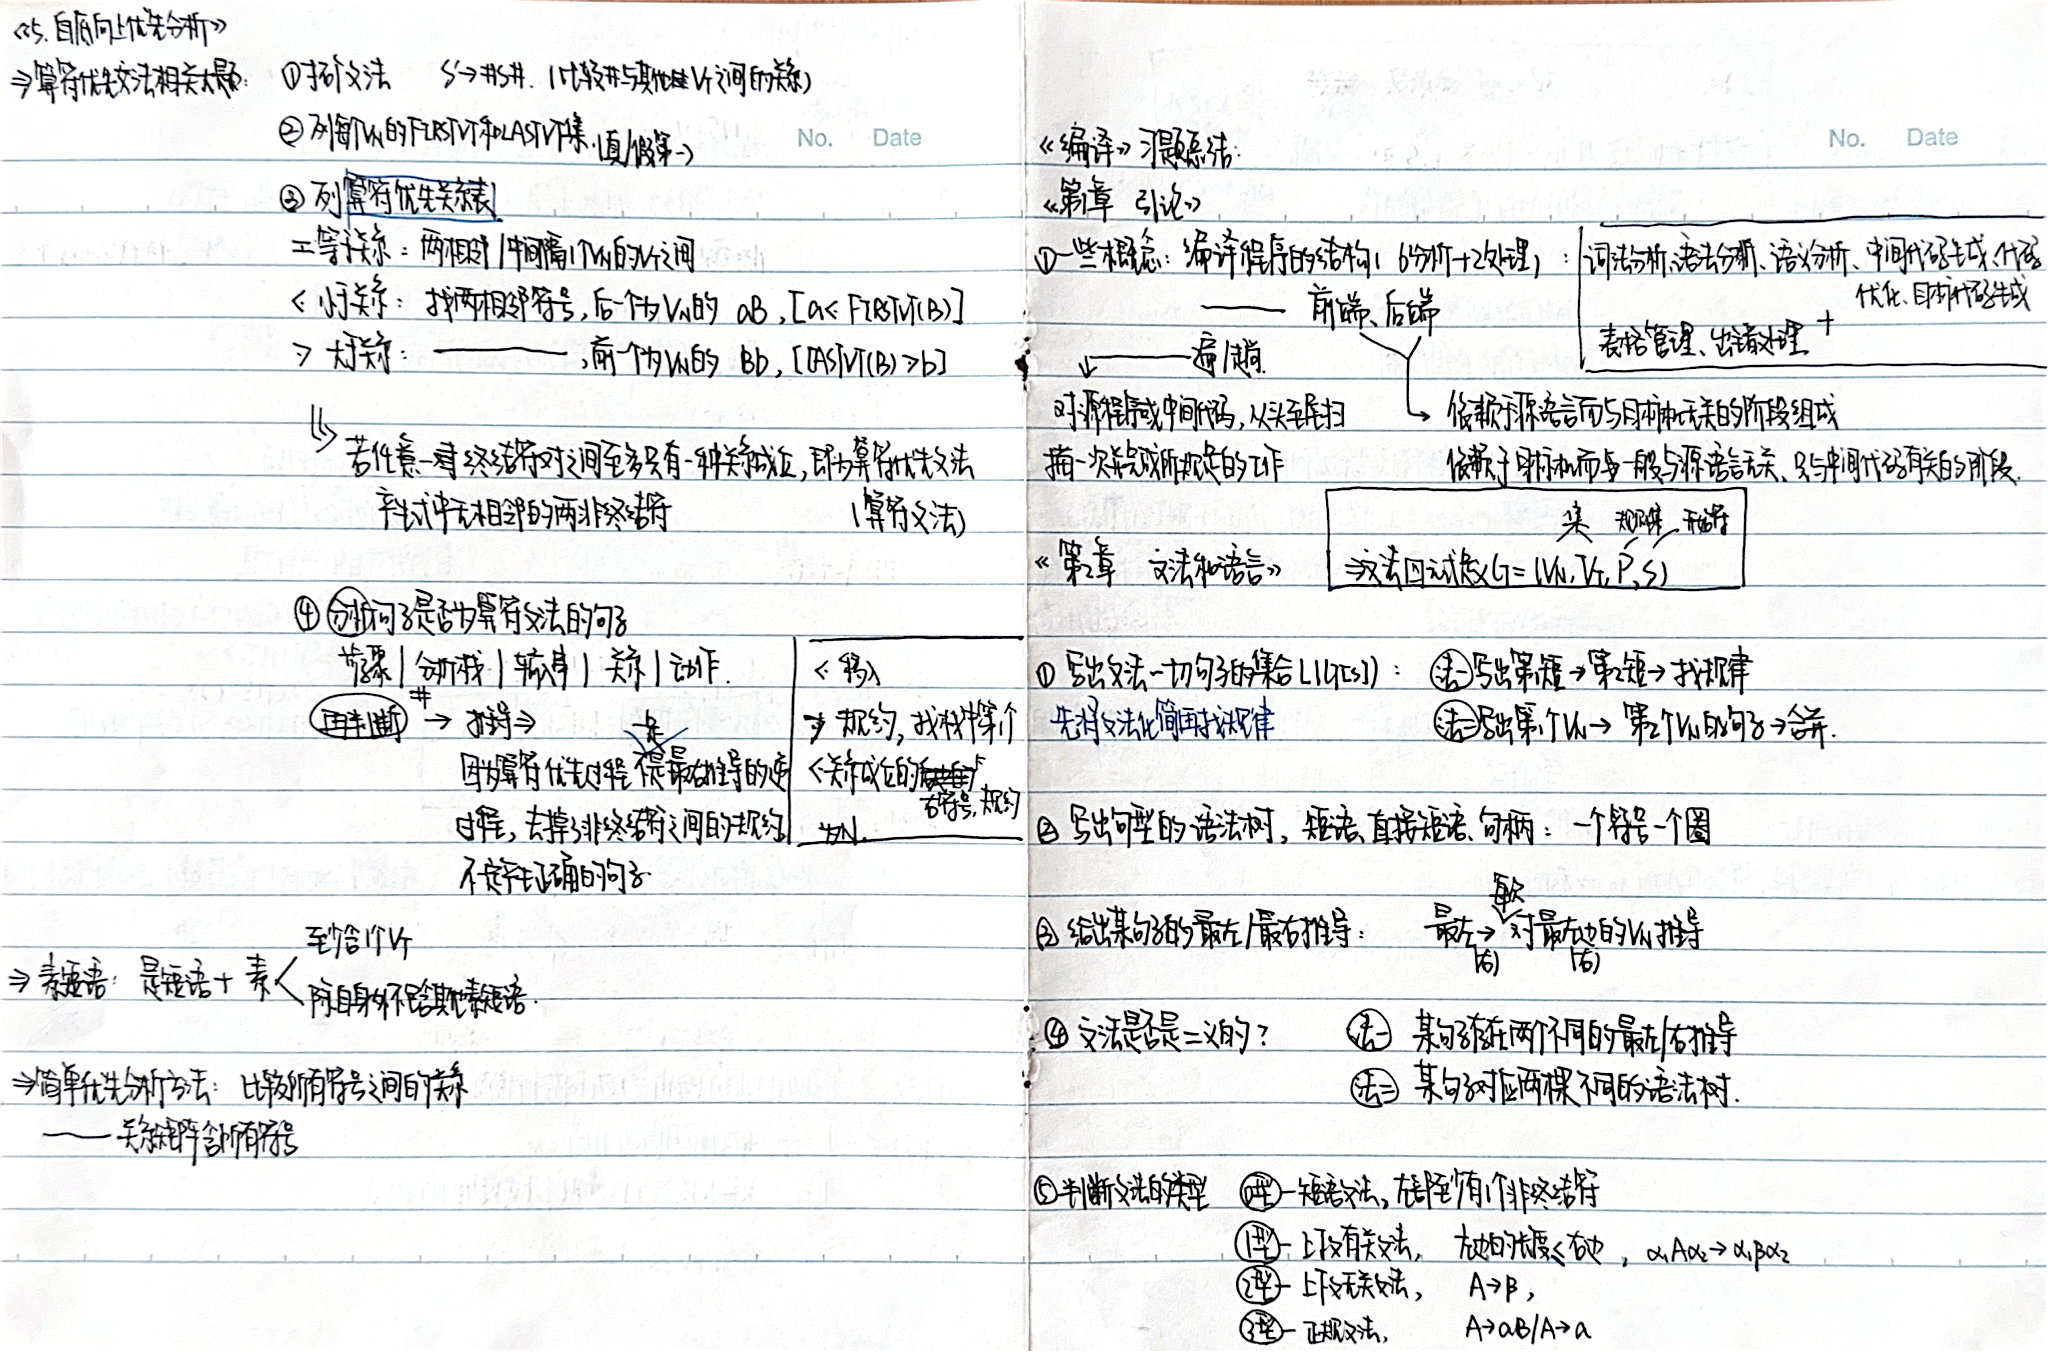 《5. 自底向上优先分析》
⇒ 算符优先文法相关大题: ①扩文法 S'→#S#. (比较#与其他VT之间的关系)
②列每个VN的FIRSTVT和LASTVT集. (真/假第一)
③列算符优先关系表
= 等于关系: 两相邻/中间隔1个VN的VT之间
< 小于关系: 找两相邻符号,后一个为VN的 aB, [a< FIRSTVT(B)]
> 大于关系: ———, 前一个为VN的 Bb, [LASTVT(B) >b]
若任意一对终结符对之间至多只有一种关系成立,即为算符优先文法
产生式中无相邻的两非终结符 (算符文法)
④ 分析句子是否为算符文法的句子
步骤 | 分析栈 | 输入串 | 关系 | 动作.
再判断 # → 推导⇒
是
因为算符优先过程 不是最右推导的逆
过程, 去掉了非终结符之间的规约,
不一定产生正确的句子.
< 移入
> 规约, 找栈中第1个
<关系成立的
右符号, 规约
为N.
至少含1个VT
⇒ 素短语: 是短语 + 素
除自身外不含其他素短语.
⇒简单优先分析方法: 比较所有符号之间的关系
——— 关系矩阵含所有符号
No. Date
《编译》习题总结:
《第1章 引论》
①一些概念: 编译程序的结构( 6分析+2处理) :
词法分析、语法分析、语义分析、中间代码生成、代码
优化、目标代码生成
+
表格管理、出错处理
——— 前端、后端
——— 遍/趟.
对源程序或中间代码, 从头至尾扫
描一次并完成所规定的工作
依赖于源语言而与目标机无关的阶段组成
依赖于目标机而与一般与源语言无关、只与中间代码有关的阶段.
《第2章 文法和语言》
集 规则集 开始符
⇒文法四元式 G = (VN, VT, P, S)
① 写出文法一切句子的集合 L(G[S]) : 法一 写出第1短 → 第2短 → 找规律
先将文法化简再找规律 法二 写出第1个VN → 第2个VN的句子 → 合并.
② 写出句型的语法树, 短语、直接短语、句柄: 一个符号一个圈
每次
③ 给出某句子的最左/最右推导: 最左→对最左边的VN推导
(右) (右)
④ 文法是否是二义的? 法一 某句子存在两个不同的最左/右推导
法二 某句子对应两棵不同的语法树.
⑤判断文法的类型 0型- 短语文法, 左部至少有1个非终结符
1型- 上下文有关文法, 左边的长度≤右边, α₁Aα₂→α₁βα₂
2型- 上下文无关文法, A→β,
3型- 正规文法, A→aB/A→a
No. Date